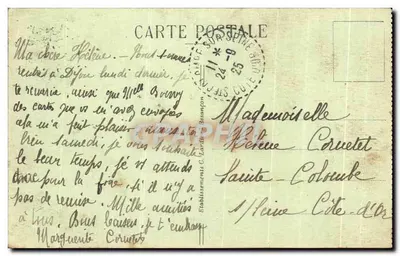 CARTE POSTALE
Ma chère Hélène. - Nous sommes
rentrés à Dijon lundi dernier, je
te remercie, ainsi que Mlle
des cartes que vs m'avez envoyées
cela m'a fait plaisir,
samedi, je vous souhaite
le beau temps, je vs attends
avec pour la foire, s'il n'y a
pas de remise. Mille amitiés
à tous. Bons baisers, je t'embrasse
Marguerite Cornetet
11 * 24 - 9 25
CÔTE D'OR
Mademoiselle
Hélène Cornetet
Sainte-Colombe
s/Seine Côte-d'Or